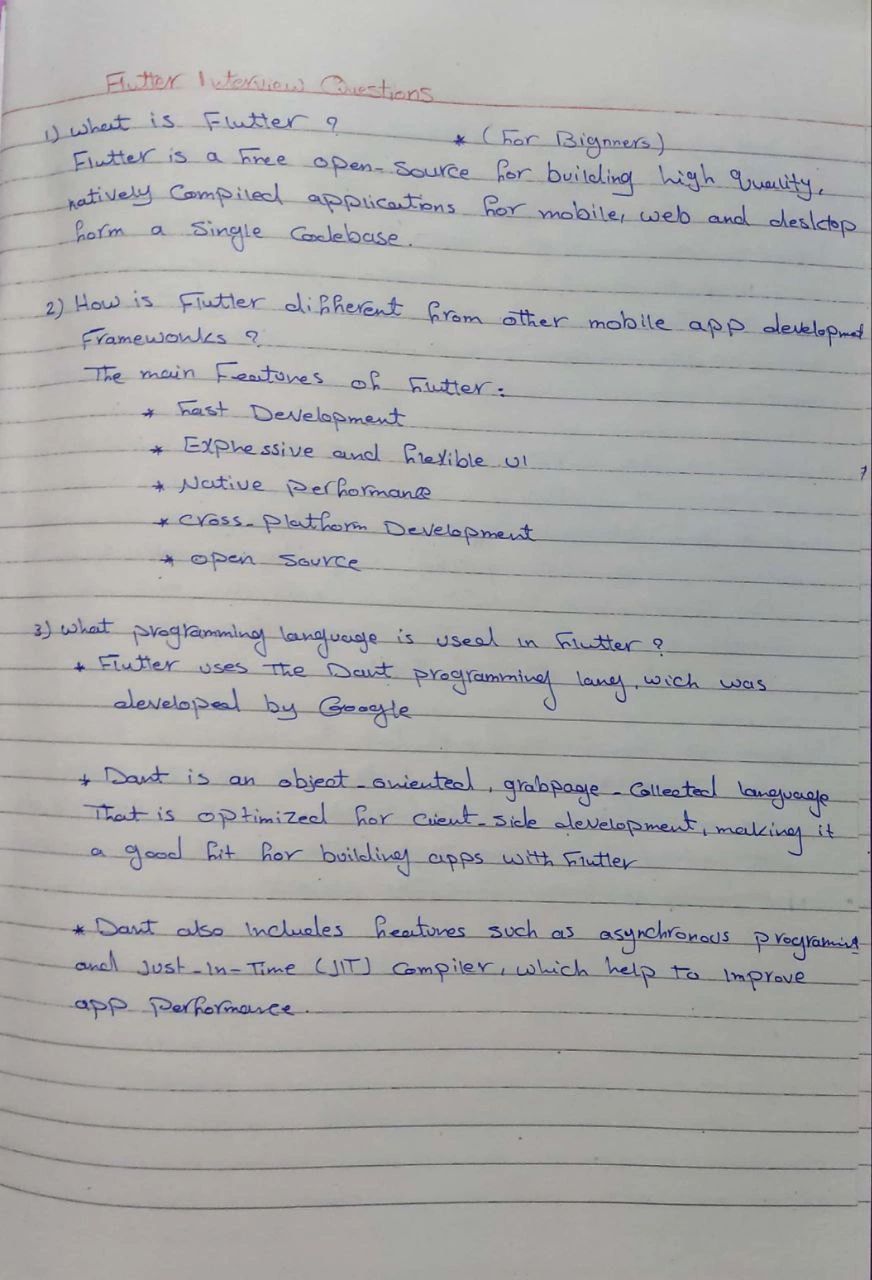 Flutter Interview Questions
1) What is Flutter ? * (For Bignners)
Flutter is a free open-source for building high quality,
natively compiled applications for mobile, web and desktop
form a Single Codebase.
2) How is Flutter different from other mobile app development
Frameworks ?
The main Features of flutter:
* Fast Development
* Expressive and flexible UI
* Native performance
* cross-platform Development
* open source
3) What programming language is used in flutter ?
* Flutter uses The Dart programming lang, wich was
developed by Google
* Dart is an object-oriented, grabpage-collected language
That is optimized for client-side development, making it
a good fit for building apps with flutter
* Dart also includes features such as asynchronous programing
and Just-In-Time (JIT) compiler, which help to improve
app performance.